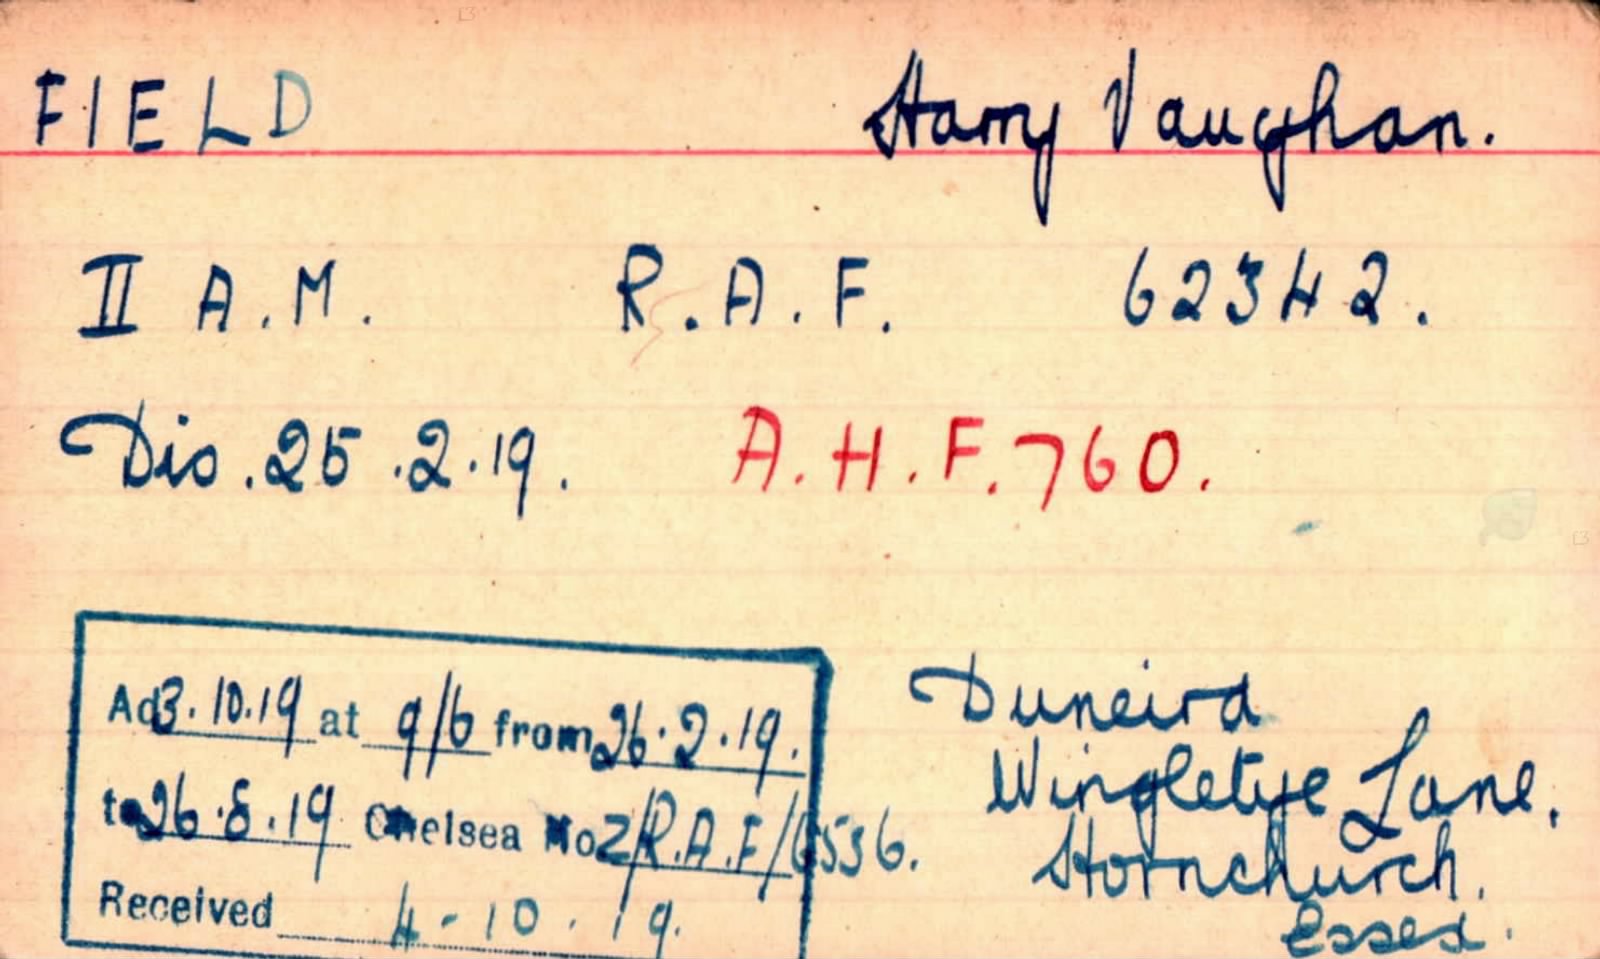 FIELD Harry Vaughan.
II A.M. R.A.F. 62342.
Dis. 25.2.19. A.H.F. 760.
Ad 3.10.19 at 9/6 from 26.2.19.
to 26.8.19 Chelsea No Z/R.A.F/6536.
Received 4-10.19.
Duneira
Wingletye Lane.
Hornchurch.
Essex.